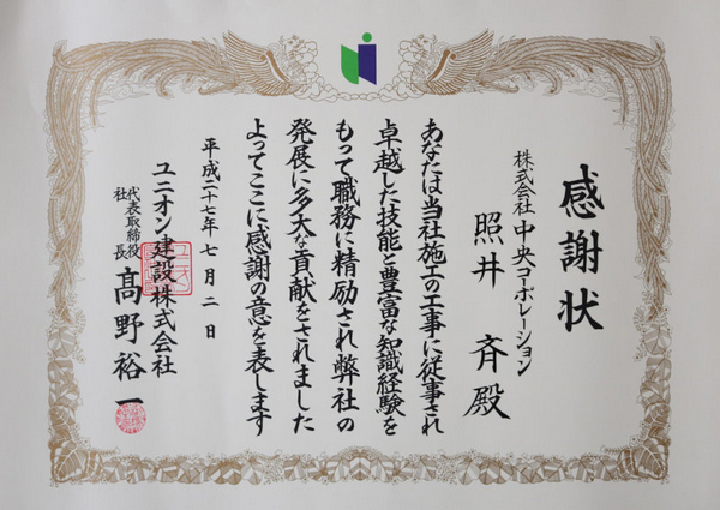 感謝状
株式会社 中央コーポレーション
照井 斉 殿
あなたは当社施工の工事に従事され
卓越した技能と豊富な知識経験を
もって職務に精励され弊社の
発展に多大な貢献をされました
よってここに感謝の意を表します
平成二十七年七月二日
ユニオン建設株式会社
代表取締役
社長
髙野裕一